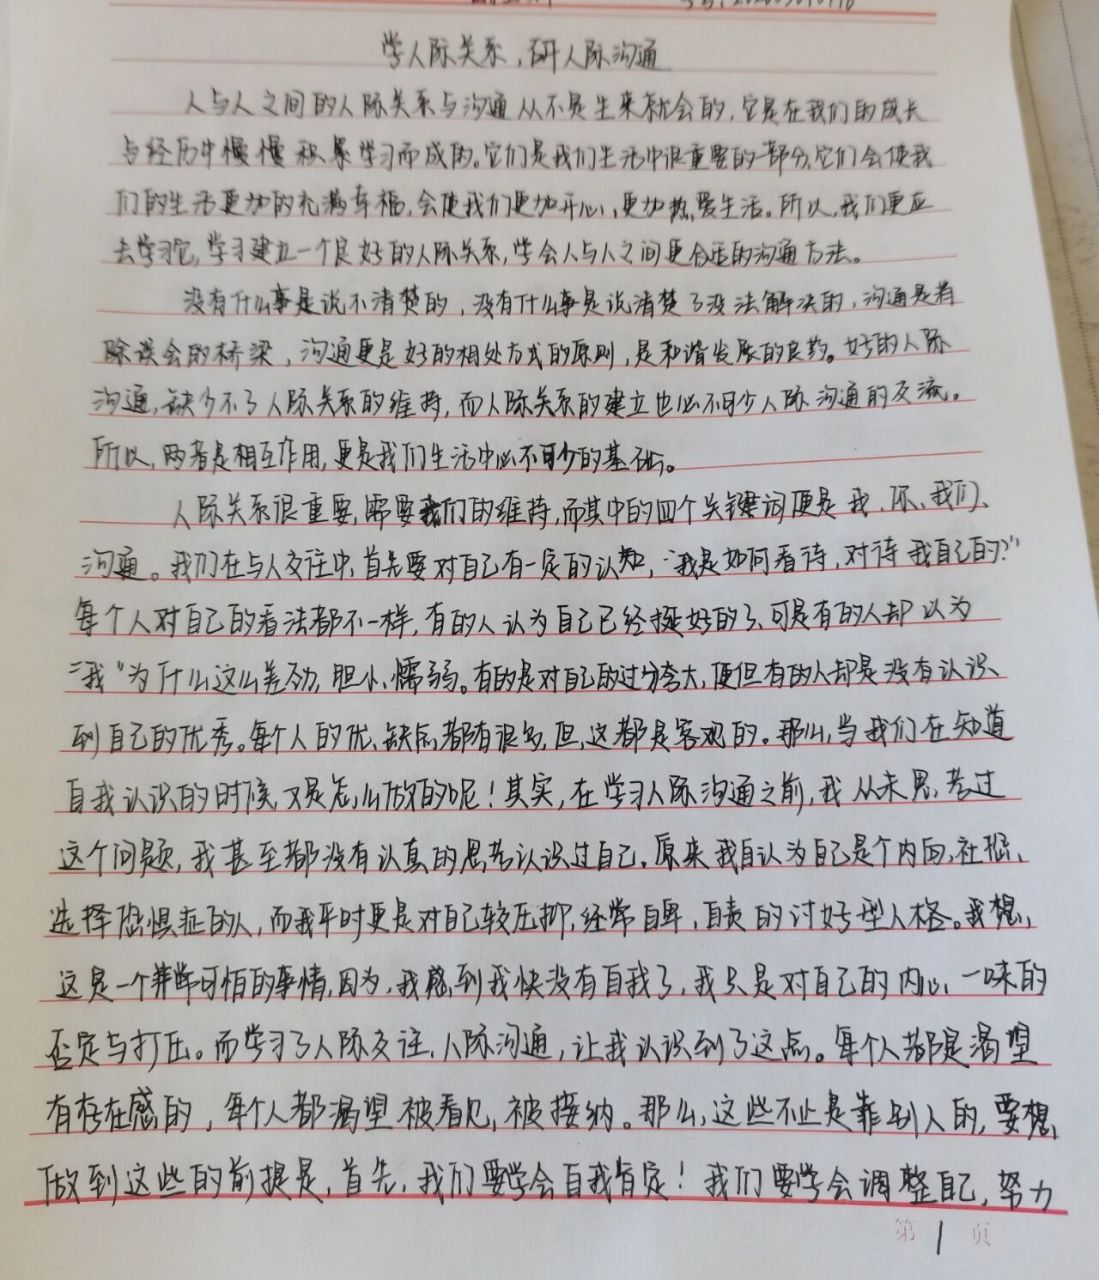 学人际关系，研人际沟通
人与人之间的人际关系与沟通从不是生来就会的，它是在我们的成长
与经历中慢慢积累学习而成的。它们是我们生活中很重要的一部分，它们会使我
们的生活更加的充满幸福，会使我们更加开心，更加热爱生活。所以，我们更应
去学习它，学习建立一个良好的人际关系，学会人与人之间更合适的沟通方法。
没有什么事是说不清楚的，没有什么事是说清楚了没法解决的，沟通是消
除误会的桥梁，沟通更是好的相处方式的原则，是和谐发展的良药。好的人际
沟通，缺少不了人际关系的维持，而人际关系的建立也必不可少人际沟通的交流。
所以，两者是相互作用，更是我们生活中必不可少的基础。
人际关系很重要，需要我们的维持，而其中的四个关键词便是我、你、我们、
沟通。我们在与人交往中，首先要对自己有一定的认知，“我是如何看待，对待我自己的？”
每个人对自己的看法都不一样，有的人认为自己已经挺好的了，可是有的人却以为
“我”为什么这么差劲，胆小，懦弱。有的是对自己的过分夸大，便但有的人却是没有认识
到自己的优秀。每个人的优、缺点都有很多，但，这都是客观的。那么，当我们在知道
自我认识的时候，又是怎么做的呢！其实，在学习人际沟通之前，我从未思考过
这个问题，我甚至都没有认真的思考认识过自己。原来我自认为自己是个内向，社恐、
选择恐惧症的人，而我平时更是对自己较压抑，经常自卑，自责的讨好型人格。我想，
这是一个非常可怕的事情，因为，我感到我快没有自我了，我只是对自己的内心，一味的
否定与打压。而学习了人际交往，人际沟通，让我认识到了这点。每个人都是渴望
有存在感的，每个人都渴望被看见，被接纳。那么，这些不止是靠别人的，要想
做到这些的前提是，首先，我们要学会自我肯定！我们要学会调整自己，努力
第1页